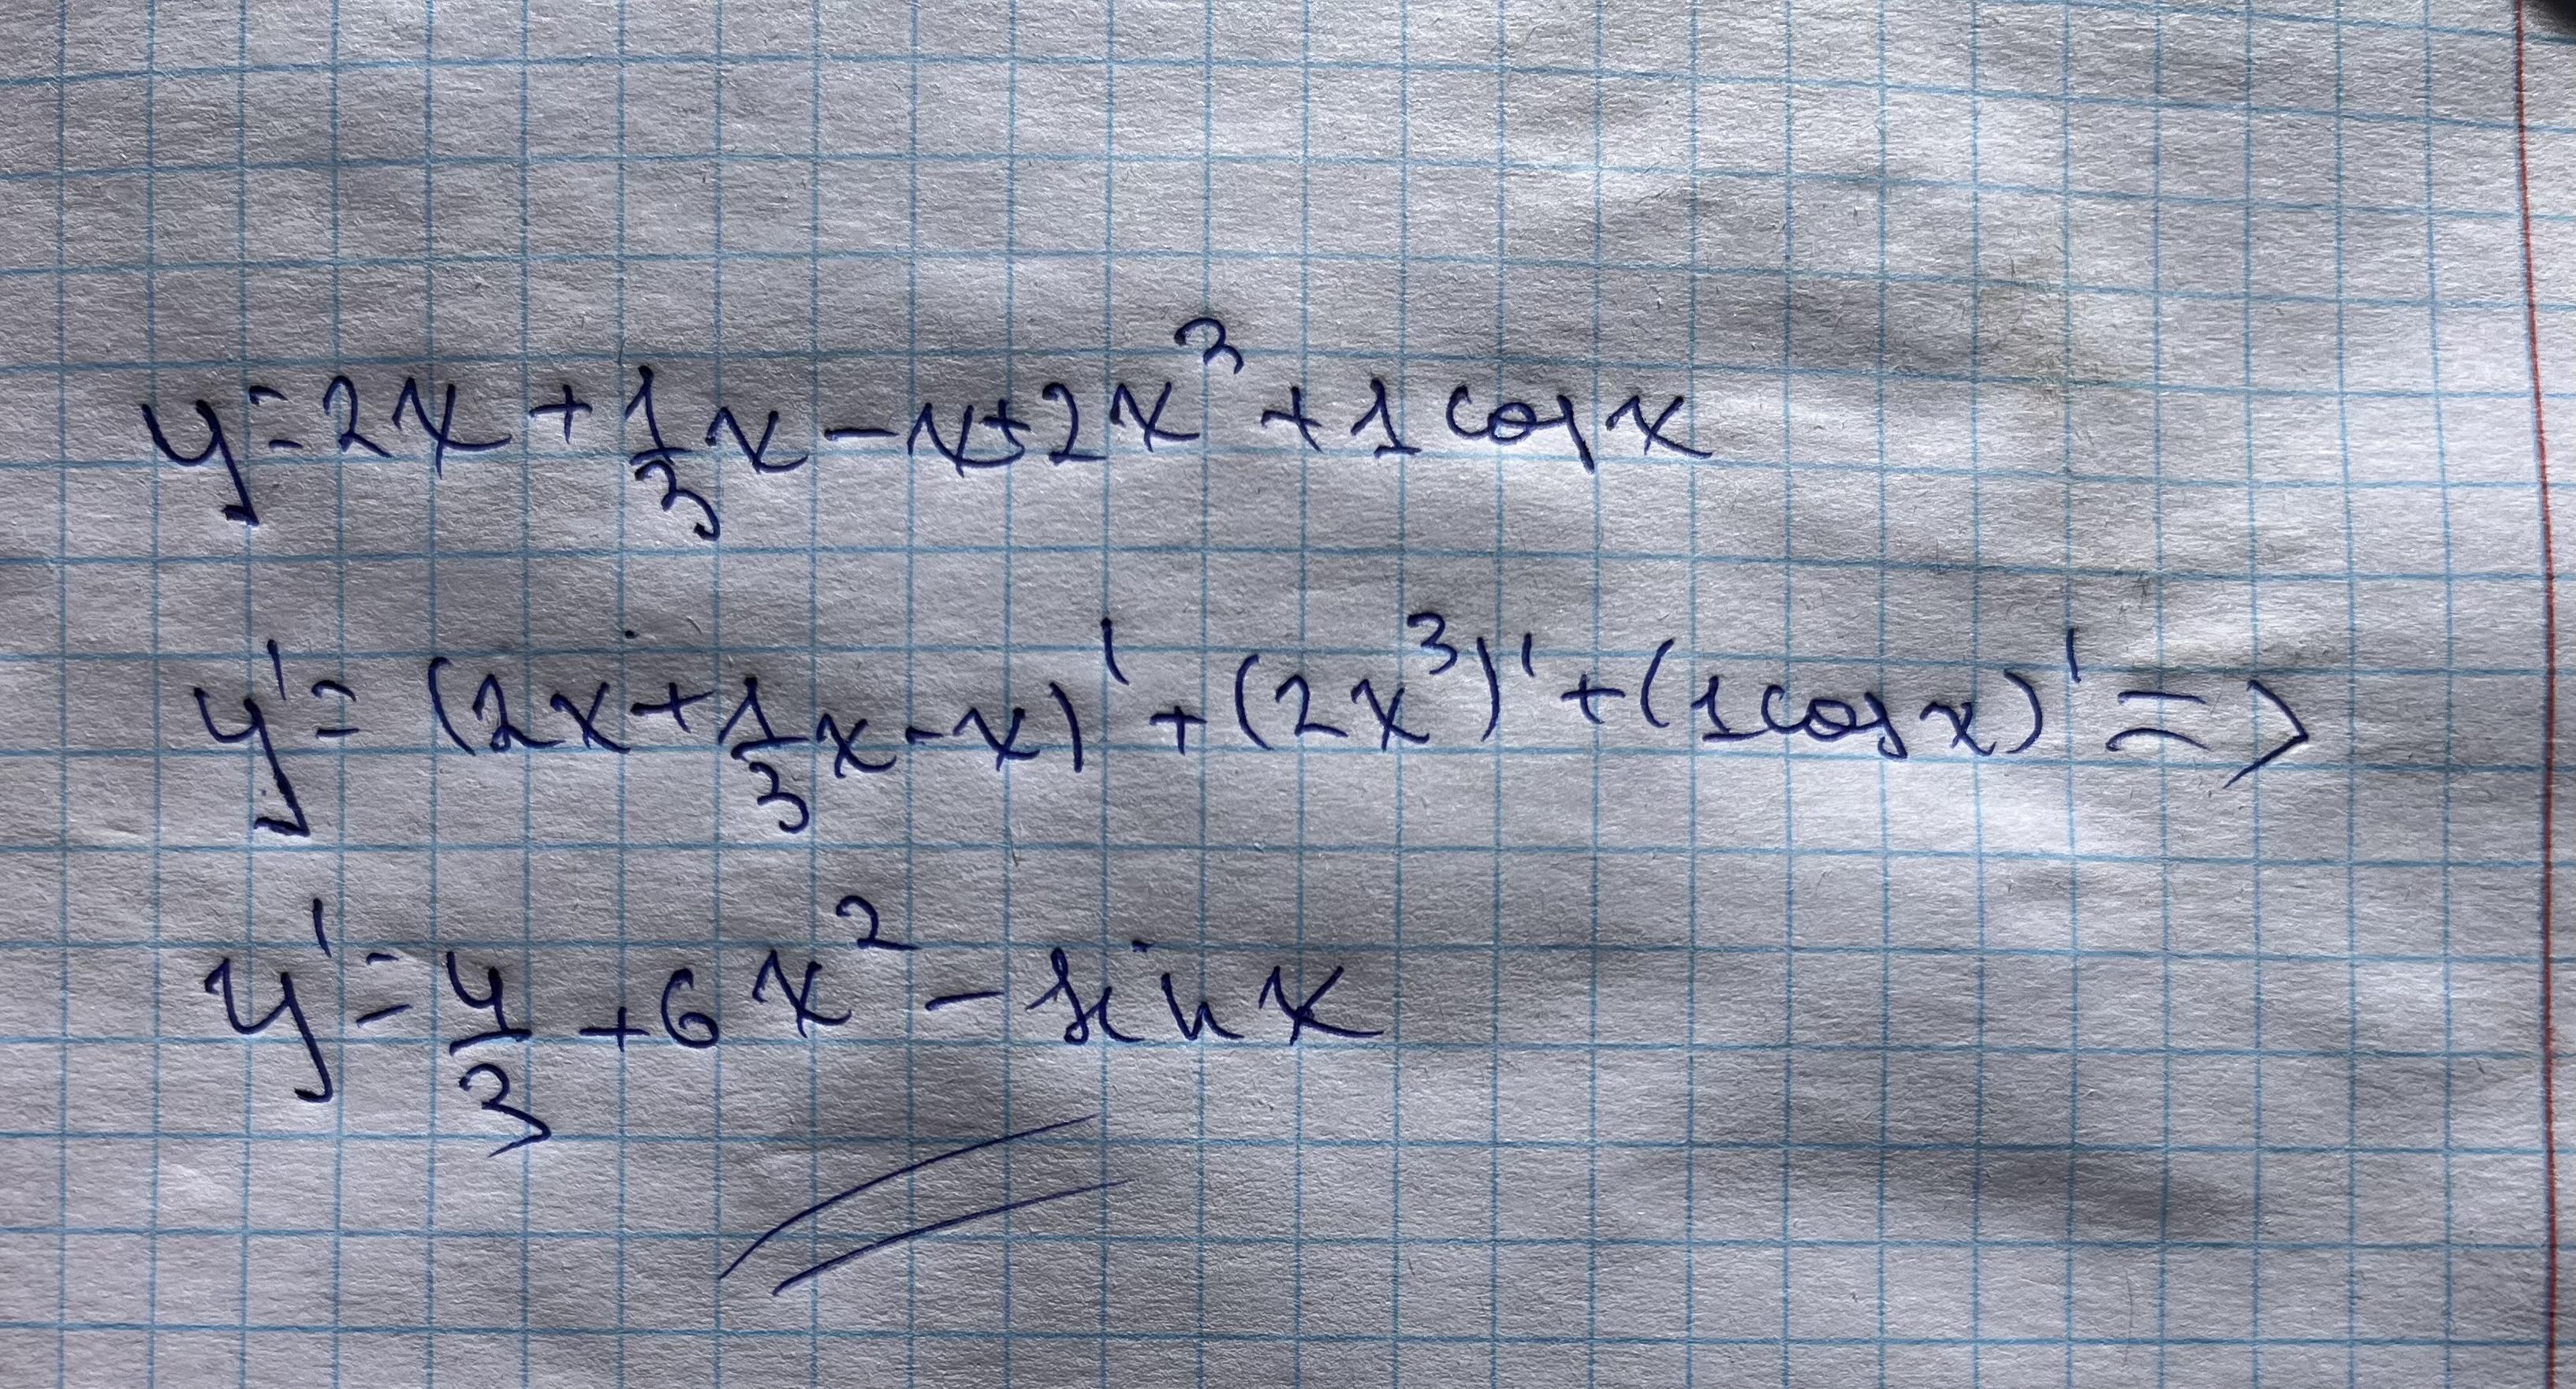 y = 2x + 1/3 x - x + 2x³ + 1 cos x
y' = (2x + 1/3 x - x)' + (2x³)' + (1 cos x)' =>
y' = 4/3 + 6x² - sin x